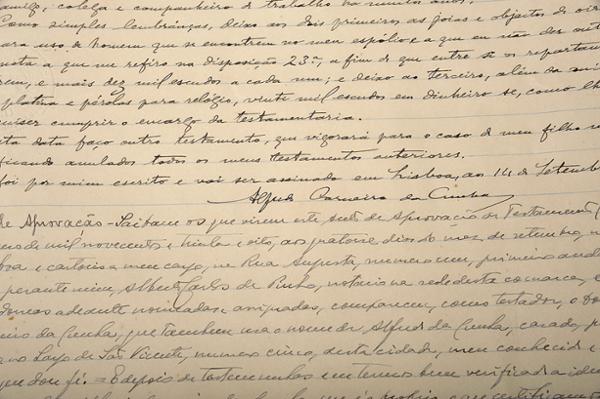 amigo, colega e companheiro de trabalho há muitos anos.
Como simples lembranças, deixo aos dois primeiros as joias e objetos de
para uso de homem que se encontrem no meu espólio e a que eu não der
a que me refiro na disposição 23ª, a fim de que entre si os repartam
e mais dez mil escudos a cada um; e deixo ao terceiro, além da
platina e pérolas para relógio, vinte mil escudos em dinheiro se, como
quiser cumprir o encargo da testamentaria.
ta data faço outro testamento, que vigorará para o caso de meu filho
ficando anulados todos os meus testamentos anteriores.
foi por mim escrito e vai ser assinado em Lisboa, aos 14 de Setembro
Alfredo Carneiro da Cunha
de Aprovação - Saibam os que virem este auto de Aprovação de Testamento
de mil novecentos e trinta e oito, aos quatorze dias do mez de setembro,
boa e cartorio a meu cargo, na Rua Augusta, numero um, primeiro
perante mim, Albert Carlos de, notario na sede desta comarca,
adeante nomeadas e assinadas, compareceu, como testador, o
da Cunha, que tambem usa o nome de Alfredo da Cunha, casado,
no Largo de São Vicente, numero cinco, desta cidade, meu conhecido
que dou fé. = E depois de testemunhas em termos bem verificada a